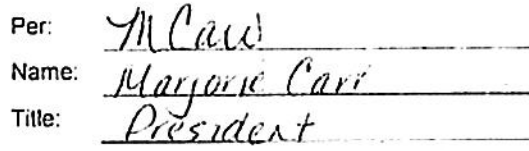 Per: M Carr
Name: Marjorie Carr
Title: President